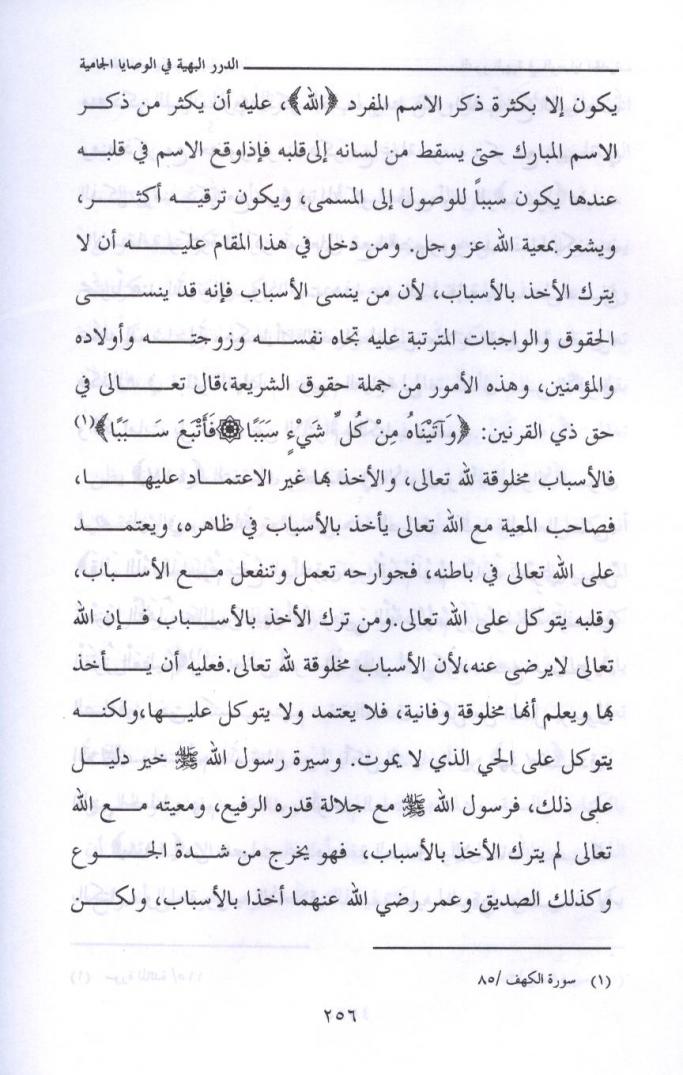 الدرر البهية في الوصايا الجامية
يكون إلا بكثرة ذكر الاسم المفرد ﴿الله﴾، عليه أن يكثر من ذكر
الاسم المبارك حتى يسقط من لسانه إلى قلبه فإذا وقع الاسم في قلبه
عندها يكون سبباً للوصول إلى المسمى، ويكون ترقيه أكثر،
ويشعر بمعية الله عز وجل. ومن دخل في هذا المقام عليه أن لا
يترك الأخذ بالأسباب، لأن من ينسى الأسباب فإنه قد ينسى
الحقوق والواجبات المترتبة عليه تجاه نفسه وزوجته وأولاده
والمؤمنين، وهذه الأمور من جملة حقوق الشريعة،قال تعالى في
حق ذي القرنين: ﴿وَآتَيْنَاهُ مِنْ كُلِّ شَيْءٍ سَبَبًا۞فَأَتْبَعَ سَبَبًا﴾(١)
فالأسباب مخلوقة لله تعالى، والأخذ بها غير الاعتماد عليها،
فصاحب المعية مع الله تعالى يأخذ بالأسباب في ظاهره، ويعتمد
على الله تعالى في باطنه، فجوارحه تعمل وتنفعل مع الأسباب،
وقلبه يتوكل على الله تعالى.ومن ترك الأخذ بالأسباب فإن الله
تعالى لايرضى عنه،لأن الأسباب مخلوقة لله تعالى.فعليه أن يأخذ
بها ويعلم أنها مخلوقة وفانية، فلا يعتمد ولا يتوكل عليها،ولكنه
يتوكل على الحي الذي لا يموت. وسيرة رسول الله ﷺ خير دليل
على ذلك، فرسول الله ﷺ مع جلالة قدره الرفيع، ومعيته مع الله
تعالى لم يترك الأخذ بالأسباب، فهو يخرج من شدة الجوع
وكذلك الصديق وعمر رضي الله عنهما أخذا بالأسباب، ولكن
(١) سورة الكهف /٨٥
٢٥٦